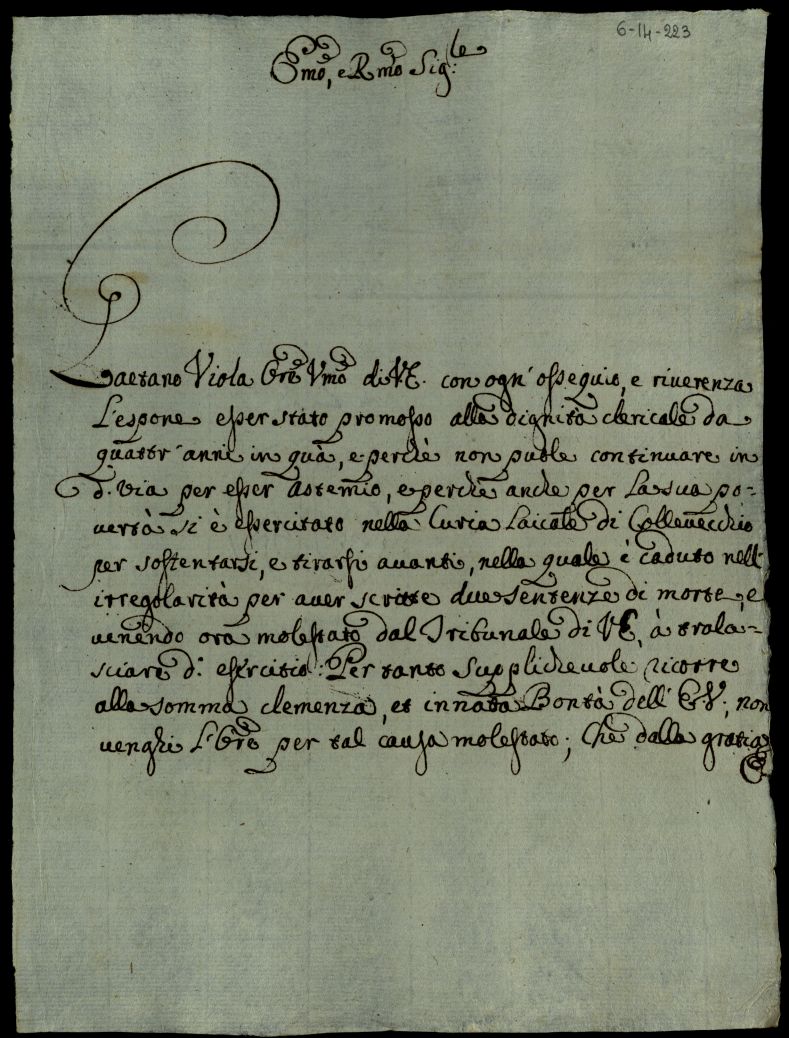 6-14-223
Emo, e Rmo Sig:le
Gaetano Viola Ore Vmo di VE. con ogn' ossequio, e riuerenza
L'espone esser stato promosso alla dignità clericale da
quattr' anni in quà, e perchè non puole continuare in
d. via per esser Astemio, e perche anche per la sua po=
uertà si è essercitato nella Curia Laicale di Colleuecchio
per sostentarsi, e tirarsi auanti, nella quale è caduto nell'
irregolarità per auer scritte due sentenze di morte, e
uenendo ora molestato dal Tribunale di VE, à trala=
sciare d.o essercitio: Per tanto supplicheuole ricorre
alla somma clemenza, et innata Bontà dell' EV., non
uenghi L'Ore per tal causa molestato; Che dalla gratia